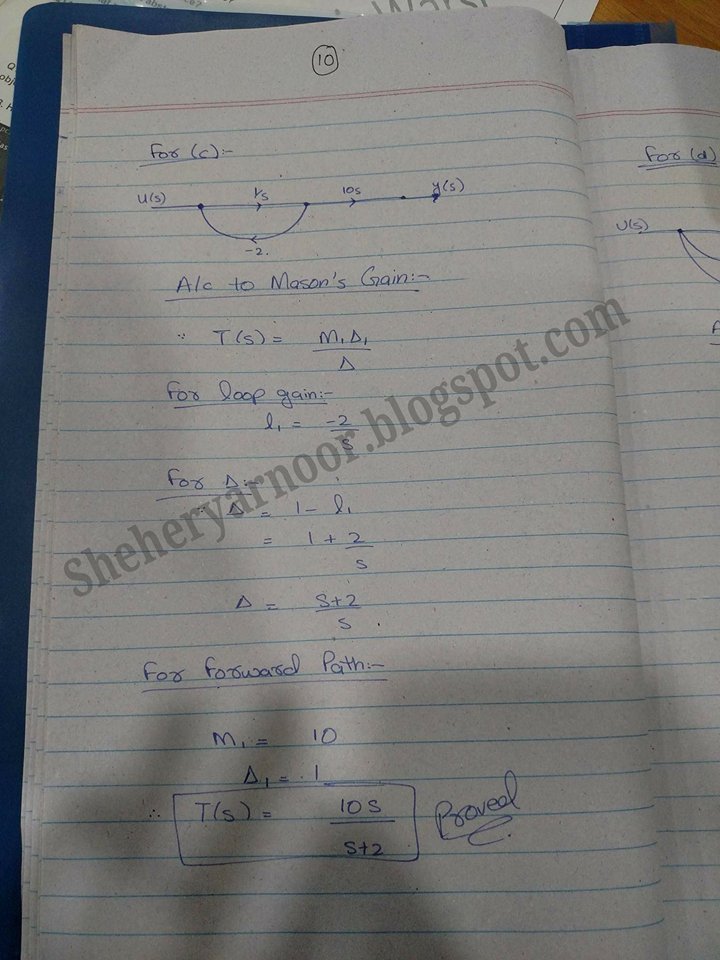 10
For (c):-
U(s) 1/s 10s y(s)
-2.
A/c to Mason's Gain:-
∵ T(s) = M₁Δ₁
Δ
For loop gain:-
l₁ = -2
s
For Δ:-
∵ Δ = 1 - l₁
= 1 + 2
s
Δ = S+2
s
For Forward Path:-
M₁ = 10
Δ₁ = 1
∴ T(s) = 10S
S+2
Proved
For (d)
U(s)
Sheheryarnoor.blogspot.com